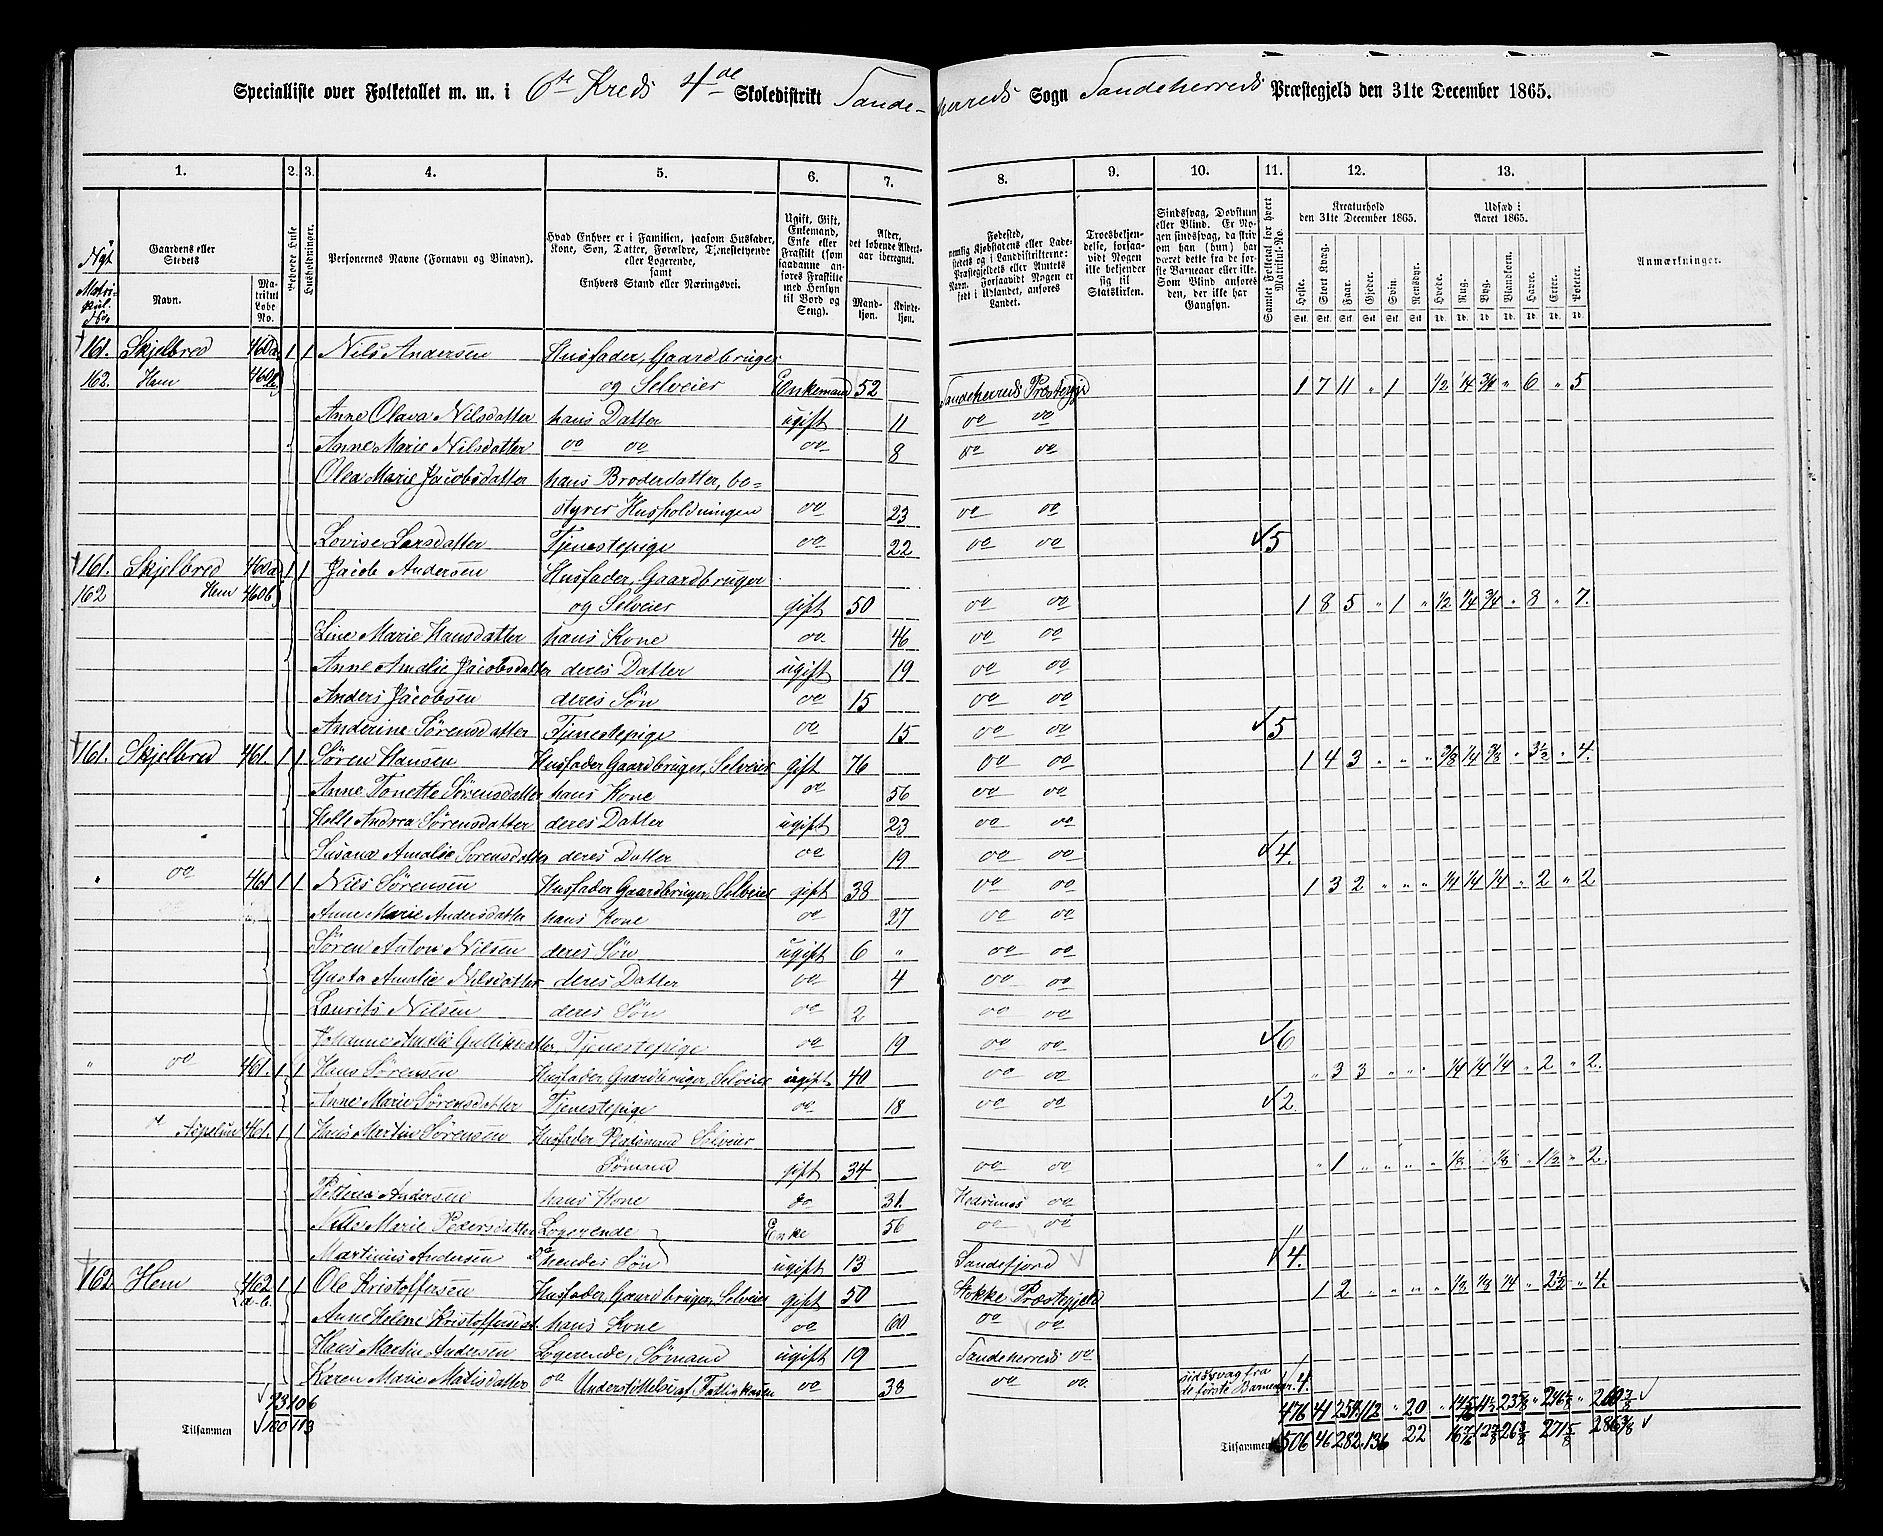 Specialliste over Folketallet m. m. i 6te Kreds 4de Skoledistrikt Sandeherreds Sogn Sandeherreds Præstegjeld den 31te December 1865.
1. 2. 3. 4. 5. 6. 7. 8. 9. 10. 11. 12. 13.
Nyt Matrikul. No.
Gaardens eller Stedets
Navn.
Matrikul Løbe No.
Beboede Huse
Husholdninger.
Personernes Navne (Fornavn og Vinavn).
Hvad Enhver er i Familien, saasom Husfader, Kone, Søn, Datter, Forældre, Tjenestetyende eller Logerende, samt Enhvers Stand eller Næringsvei.
Ugift, Gift, Enkemand, Enke eller Fraskilt (som saadanne anføres Fraskilte med Hensyn til Bord og Seng).
Alder, det løbende Alders-aar iberegnet.
Mandkjøn. Kvindekjøn.
Fødested, nemlig Kjøbstadens eller Ladestedets og i Landdistrikterne: Præstegjeldets eller Amtets Navn. Forsaavidt Nogen er født i Udlandet, anføres Landet.
Troesbekjendelse, forsaavidt Nogen ikke bekjender sig til Statskirken.
Sindssvag, Døvstum eller Blind. Er Nogen sindssvag, da skrives om han (hun) har været dette fra de første Barneaar eller ikke. Som Blind anføres den, der ikke har Gangsyn.
Samlet Folketal for hvert Matrikul-No.
Kreaturhold den 31te December 1865.
Heste. Stort Kvæg. Faar. Gjeder. Svin. Rensdyr.
Udsæd i Aaret 1865.
Hvede. Rug. Byg. Blandkorn. Havre. Erter. Poteter.
Anmærkninger.
161. Skjelbred 460a 1 1 Nils Andersen Husfader, Gaardbruger
162. Hem 460b og Selveier Enkemand 52 Sandeherreds Præstegje 1 7 11 " 1 1/2 1/4 3/4 " 6 " 5
Anne Olava Nilsdatter hans Datter ugift 11 do do
Anne Marie Nilsdatter do do do 8 do do
Olea Marie Jacobsdatter hans Broderdatter, be=
styrer Husholdningen do 23 do do
Lovise Larsdatter Tjenestepige do 22 do do 5
161. Skjelbred 460a 1 1 Jacob Andersen Husfader, Gaardbruger
162 Hem 460b og Selveier gift 50 do do 1 8 5 " 1 " 1/2 1/4 3/4 " 8 " 7.
Line Marie Hansdatter hans Kone do 46 do do
Anne Amalie Jacobsdatter deres Datter ugift 19 do do
Anders Jacobsen deres Søn do 15 do do
Anderine Sørensdatter Tjenestepige do 15 do do 5
161. Skjelbred 461. 1 1 Søren Hansen Husfader Gaardbruger, Selveier gift 76 do do 1 4 3 " " " 3/8 1/4 3/8 " 3 1/2 " 4.
Anne Tonette Sørensdatter hans Kone do 56 do do
Helle Andrea Sørensdatter deres Datter ugift 23 do do
Susana Amalie Sørensdatter deres Datter do 19 do do 4.
" do 461 1 1 Nils Sørensen Husfader Gaardbruger, Selveier gift 38 do do 1 3 2 " " " 1/4 1/4 1/4 " 2 " 2
Anne Marie Andersdatter hans Kone do 27 do do
Søren Anton Nilsen deres Søn ugift 6 " do do
Gusta Amalie Nilsdatter deres Datter do 4 do do
Laurits Nilsen deres Søn do 2 do do
Johanne Amalie Gulliksdatter, Tjenestepige do 19 do do 6
" do 461. 1 1 Hans Sørensen Husfader Gaardbruger, Selveier ugift 40 do do " 3 3 " " " 1/4 1/4 1/4 " 2 " 2.
Anne Marie Sørensdatter Tjenestepige do 18 do do 2
Aspelun 461. 1 1 Hans Martin Sørensen Husfader Pladsmand Selveier
Sømand gift 34 do do " 1 " " " " 1/8 " 1/8 " 1 1/2 " 2.
Andersen hans Kone do 31. Hedrums do
Marie Pedersdatter Logerende Enke 56 do do
Martinus Andersen hendes Søn ugift 13 Sandefjord 4.
162. Hem 462 a-b 1 1 Ole Kristoffersen Husfader, Gaardbruger, Selveier gift 50 Stokke Præstegjeld 1 2 " " " " 1/8 1/8 1/4 " 2 1/2 " 4.
Anne Helene Kristoffersdt. hans Kone do 60 do do
Hans Martin Andersen Logerende, Sømand ugift 19 Sandeherreds do
Karen Marie Matisdatter do Understøttelse af Fattigkassen do 38 do do sindssvag fra de første Barneaar. 4.
93 106 476 41 254 112 " 20
Tilsammen 100 113 Tilsammen 506 46 282 136 22